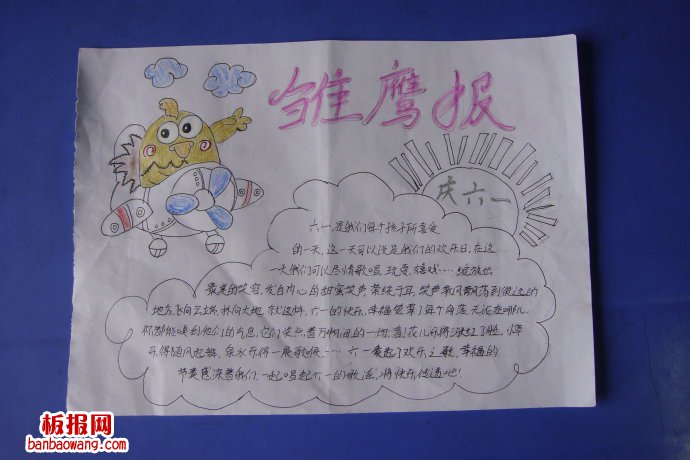 雏鹰报
庆六一
六一,是我们每个孩子所喜爱
的一天,这一天可以说是我们的欢乐日,在这
一天我们可以尽情歌唱,玩耍,嬉戏……绽放出
最美的笑容,发自内心的甜蜜笑声,萦绕于耳,笑声乘风飘荡到很远的
地方,飞向云端,扑向大地,就这样,六一的快乐,幸福笼罩了每个角落,无论在哪儿
你都能嗅到他们的气息,它们笑点着万物间的一切,看花儿乐得涨红了脸,草
乐得随风起舞,泉水乐得一展歌喉……六一奏起了欢乐之歌,幸福的
节奏感染着我们,一起唱起六一的歌谣,将快乐传递吧!
板报网
banbaowang.com